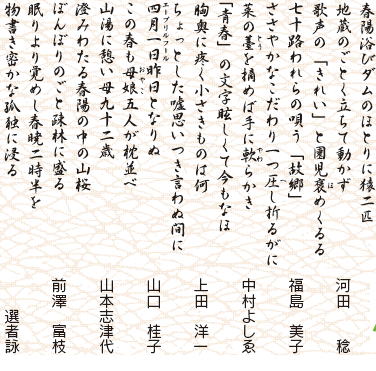 春陽浴びダムのほとりに猿二匹
地蔵のごとく立ちて動かず
河田　稔
歌声の「きれい」と園児褒めくるる
七十路われらの唄う「故郷」
福島　美子
ささやかなこだわり一つ圧し折るがに
菜の薹を摘めば手に軟らかき
中村よしゑ
「青春」の文字眩しくて今もなほ
胸奥に疼く小さきものは何
上田　洋一
ちょっとした嘘思いつき言わぬ間に
四月一日昨日となりぬ
山口　桂子
この春も母娘五人が枕並べ
山湯に憩い母九十二歳
山本志津代
澄みわたる春陽の中の山桜
ぼんぼりのごと疎林に盛る
前澤　富枝
眠りより覚めし春暁二時半を
物書き密かな孤独に浸る
選者詠